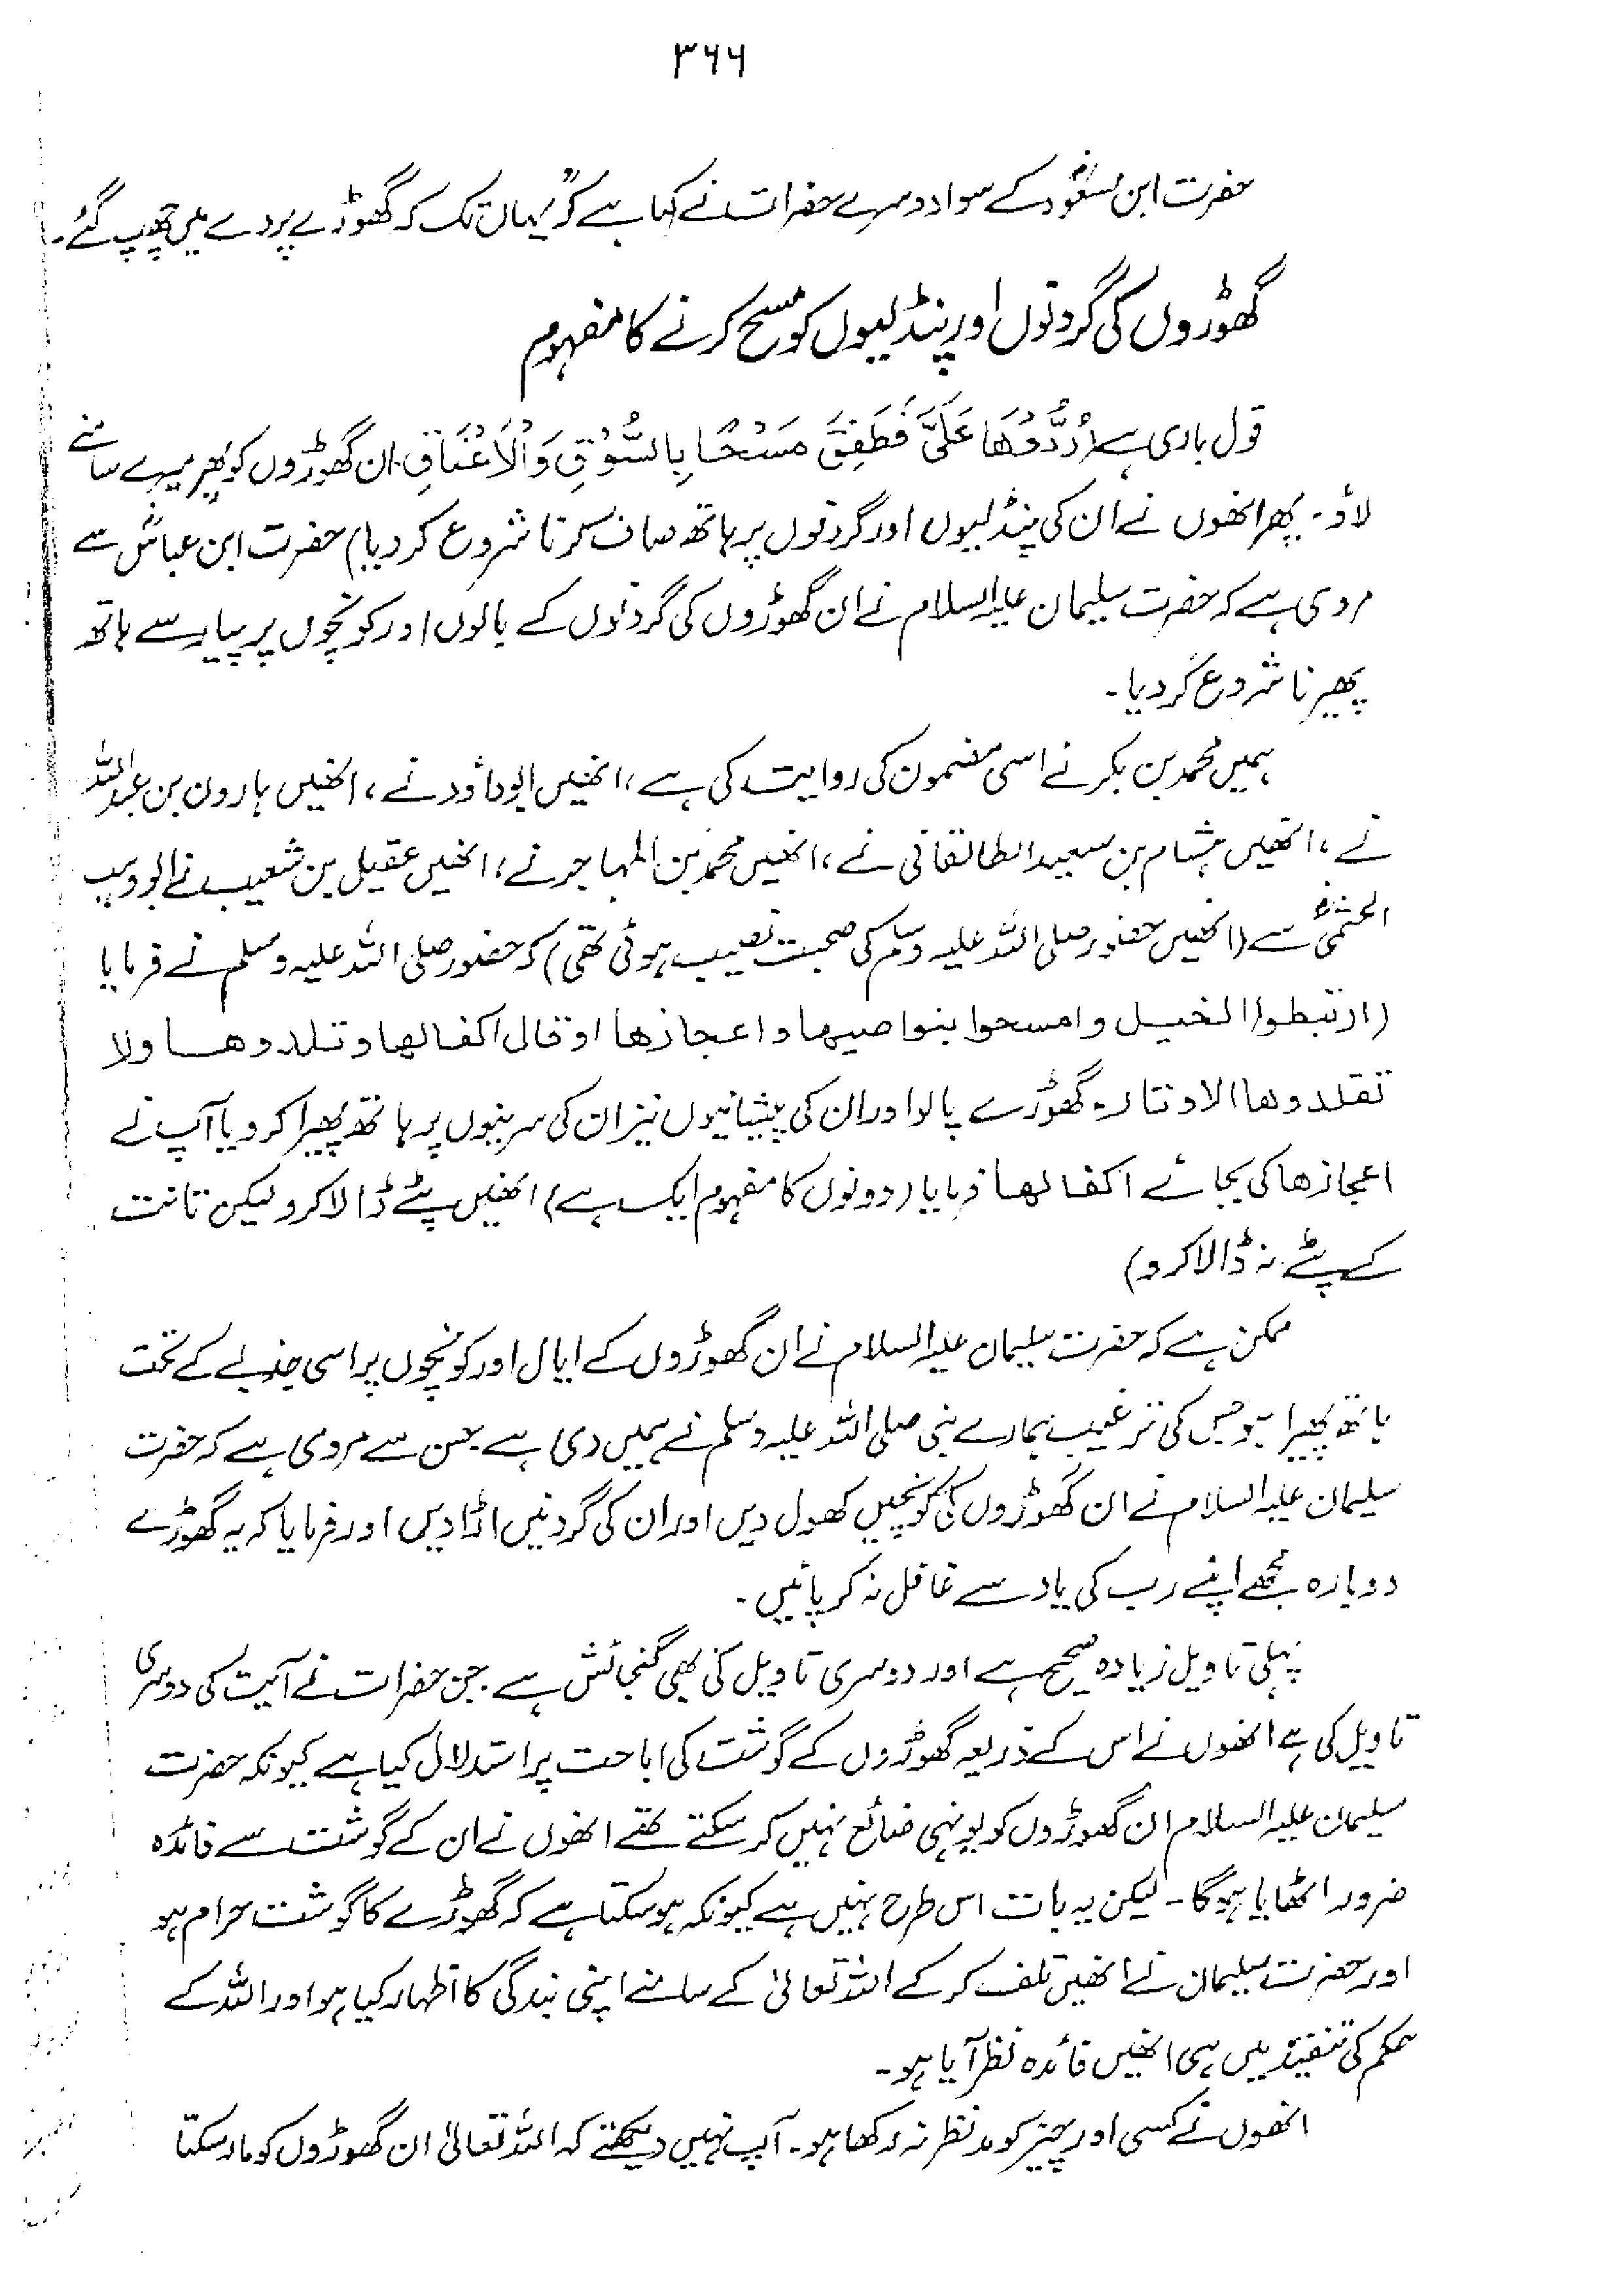 ۳۶۶
حضرت ابن مسعودؓ کے سوا دوسرے حضرات نے کہا ہے کہ "یہاں تک کہ گھوڑے پردے میں چھپ گئے۔
گھوڑوں کی گردنوں اور پنڈلیوں کو مسح کرنے کا مفہوم
قول باری ہے (رُدُّوْهَا عَلَیَّ فَطَفِقَ مَسْحًا بِالسُّوْقِ وَالْاَعْنَاقِ۔ ان گھوڑوں کو پھر میرے سامنے
لاؤ۔ پھر انھوں نے ان کی پنڈلیوں اور گردنوں پر ہاتھ صاف کرنا شروع کر دیا) حضرت ابن عباسؓ سے
مروی ہے کہ حضرت سلیمان علیہ السلام نے ان گھوڑوں کی گردنوں کے بالوں اور کونچوں پر پیار سے ہاتھ
پھیرنا شروع کر دیا۔
ہمیں محمد بن بکر نے اسی مضمون کی روایت کی ہے، انھیں ابوداؤد نے، انھیں ہارون بن عبداللہ
نے، انھیں ہشام بن سعید الطالقانی نے، انھیں محمد بن المہاجر نے، انھیں عقیل بن شعیب نے ابو وہب
الجشمیؓ سے (انھیں حضور صلی اللہ علیہ وسلم کی صحبت نصیب ہوئی تھی) کہ حضور صلی اللہ علیہ وسلم نے فرمایا
(ارتبطوا الخیل وامسحوا بنواصیھا واعجازھا اوقال اکفالھا وتلدوھا ولا
تقلدوھا الاوتار۔ گھوڑے پالو اور ان کی پیشانیوں نیز ان کی سرینوں پر ہاتھ پھیرا کرو یا آپ نے
اعجازھا کی بجائے اکفالھا فرمایا (دونوں کا مفہوم ایک ہے) انھیں پٹے ڈالا کرو لیکن تانت
کے پٹے نہ ڈالا کرو)
ممکن ہے کہ حضرت سلیمان علیہ السلام نے ان گھوڑوں کے ایال اور کونچوں پر اسی جذبے کے تحت
ہاتھ پھیرا ہو جس کی ترغیب ہمارے نبی صلی اللہ علیہ وسلم نے ہمیں دی ہے۔ حسن سے مروی ہے کہ حضرت
سلیمان علیہ السلام نے ان گھوڑوں کی کونچیں کھول دیں اور ان کی گردنیں اڑا دیں اور فرمایا کہ یہ گھوڑے
دوبارہ مجھے اپنے رب کی یاد سے غافل نہ کر پائیں۔
پہلی تاویل زیادہ صحیح ہے اور دوسری تاویل کی بھی گنجائش ہے۔ جن حضرات نے آیت کی دوسری
تاویل کی ہے انھوں نے اس کے ذریعہ گھوڑوں کے گوشت کی اباحت پر استدلال کیا ہے کیونکہ حضرت
سلیمان علیہ السلام ان گھوڑوں کو یونہی ضائع نہیں کر سکتے تھے انھوں نے ان کے گوشت سے فائدہ
ضرور اٹھایا ہوگا۔ لیکن یہ بات اس طرح نہیں ہے کیونکہ ہو سکتا ہے کہ گھوڑے کا گوشت حرام ہو
اور حضرت سلیمان نے انھیں تلف کر کے اللہ تعالیٰ کے سامنے اپنی بندگی کا اظہار کیا ہو اور اللہ کے
حکم کی تنفیذ میں ہی انھیں فائدہ نظر آیا ہو۔
انھوں نے کسی اور چیز کو مدنظر نہ رکھا ہو۔ آپ نہیں دیکھتے کہ اللہ تعالیٰ ان گھوڑوں کو مار سکتا